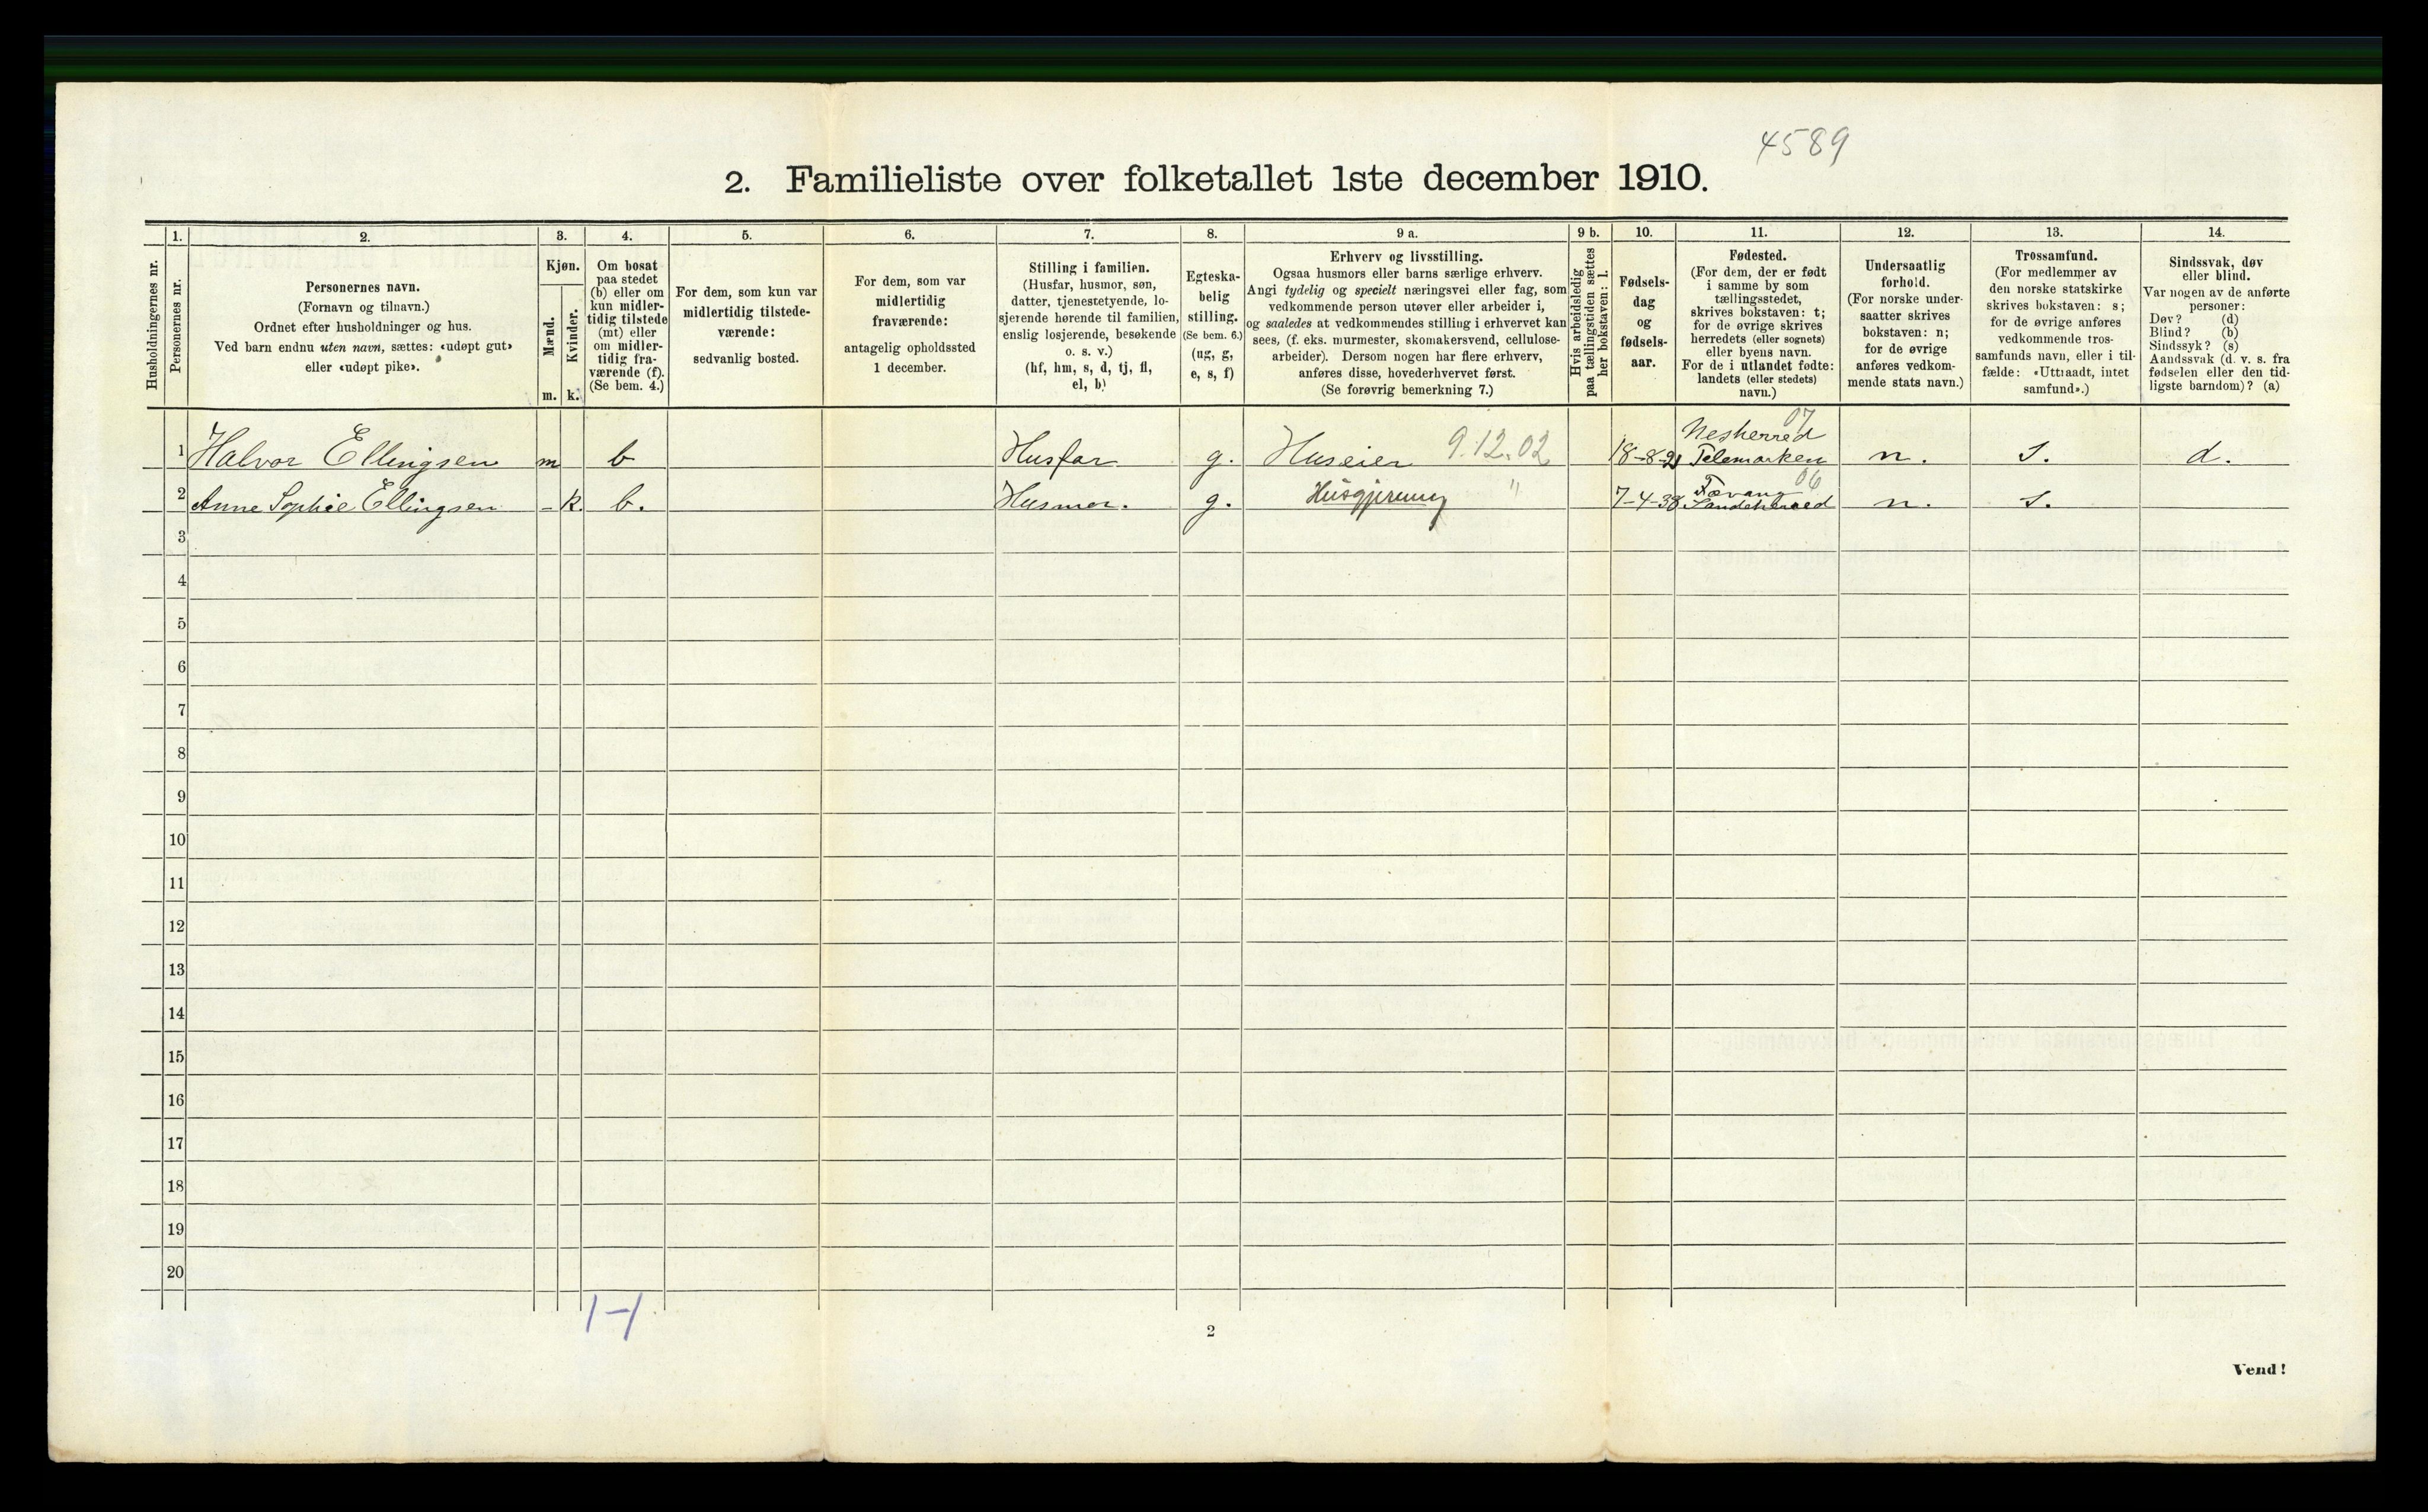 4589
2. Familieliste over folketallet 1ste december 1910.
1. 2. 3. 4. 5. 6. 7. 8. 9 a. 9 b. 10. 11. 12. 13. 14.
Husholdningernes nr.
Personernes nr.
Personernes navn.
(Fornavn og tilnavn.)
Ordnet efter husholdninger og hus.
Ved barn endnu uten navn, sættes: «udøpt gut»
eller «udøpt pike».
Kjøn.
Mænd.
Kvinder.
m. k.
Om bosat
paa stedet
(b) eller om
kun midler-
tidig tilstede
(mt) eller
om midler-
tidig fra-
værende (f).
(Se bem. 4.)
For dem, som kun var
midlertidig tilstede-
værende:
sedvanlig bosted.
For dem, som var
midlertidig
fraværende:
antagelig opholdssted
1 december.
Stilling i familien.
(Husfar, husmor, søn,
datter, tjenestetyende, lo-
sjerende hørende til familien,
enslig losjerende, besøkende
o. s. v.)
(hf, hm, s, d, tj, fl,
el, b)
Egteska-
belig
stilling.
(Se bem. 6.)
(ug, g,
e, s, f)
Erhverv og livsstilling.
Ogsaa husmors eller barns særlige erhverv.
Angi tydelig og specielt næringsvei eller fag, som
vedkommende person utøver eller arbeider i,
og saaledes at vedkommendes stilling i erhvervet kan
sees, (f. eks. murmester, skomakersvend, cellulose-
arbeider). Dersom nogen har flere erhverv,
anføres disse, hovederhvervet først.
(Se forøvrig bemerkning 7.)
Hvis arbeidsledig
paa tællingstiden sættes
her bokstaven: l.
Fødsels-
dag
og
fødsels-
aar.
Fødested.
(For dem, der er født
i samme by som
tællingsstedet,
skrives bokstaven: t;
for de øvrige skrives
herredets (eller sognets)
eller byens navn.
For de i utlandet fødte:
landets (eller stedets)
navn.)
Undersaatlig
forhold.
(For norske under-
saatter skrives
bokstaven: n;
for de øvrige
anføres vedkom-
mende stats navn.)
Trossamfund.
(For medlemmer av
den norske statskirke
skrives bokstaven: s;
for de øvrige anføres
vedkommende tros-
samfunds navn, eller i til-
fælde: «Uttraadt, intet
samfund».)
Sindssvak, døv
eller blind.
Var nogen av de anførte
personer:
Døv? (d)
Blind? (b)
Sindssyk? (s)
Aandssvak (d. v. s. fra
fødselen eller den tid-
ligste barndom)? (a)
07
Nesherred
1 Halvor Ellingsen m b Husfar g. Huseier 9.12.02 18-8-21 Telemarken n. S. d.
06
2 Anne Sophie Ellingsen - k. b. Husmor. g. Husgjerning " 7-4-38 Sandeherred n. S.
3
4
5
6
7
8
9
10
11
12
13
14
15
16
17
18
19
20
1-1
2
Vend!